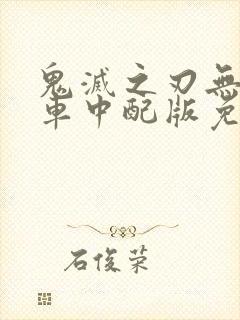 鬼滅之刃無
車中配版免
石俊荣